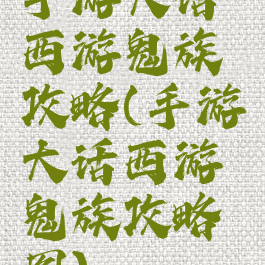 手游大话
西游鬼族
攻略(手游
大话西游
鬼族攻略
图)